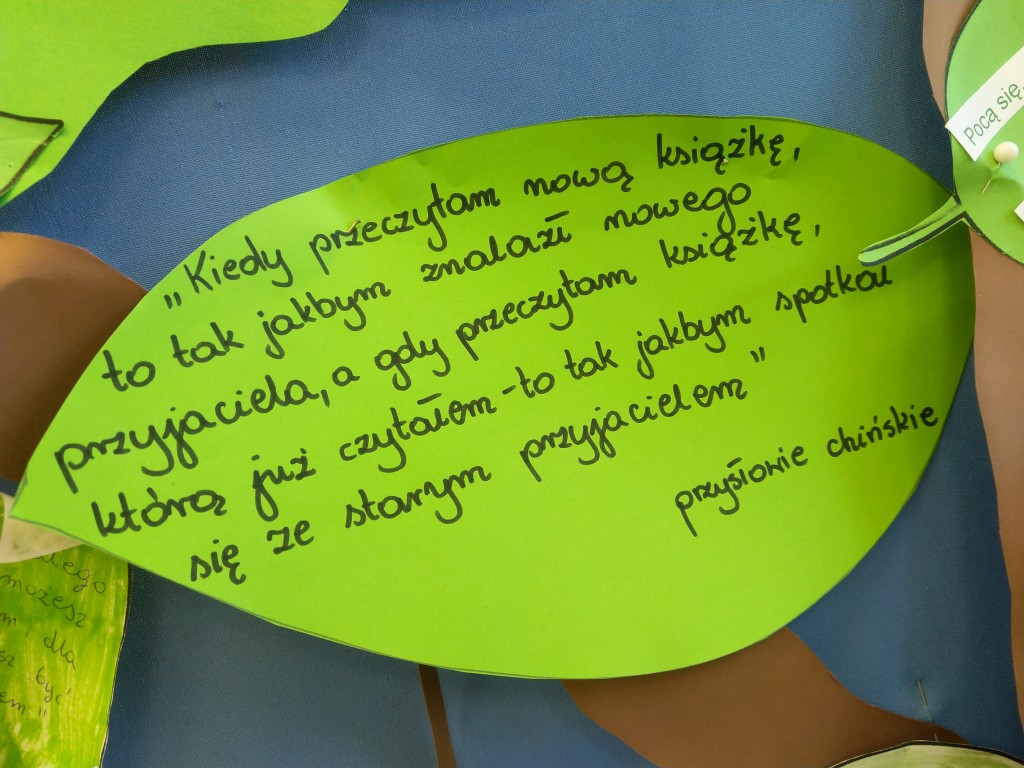 „Kiedy przeczytam nową książkę,
to tak jakbym znalazł nowego
przyjaciela, a gdy przeczytam książkę,
którą już czytałem - to tak jakbym spotkał
się ze starym przyjacielem”
przysłowie chińskie
Pocą się,
możesz
dla
być